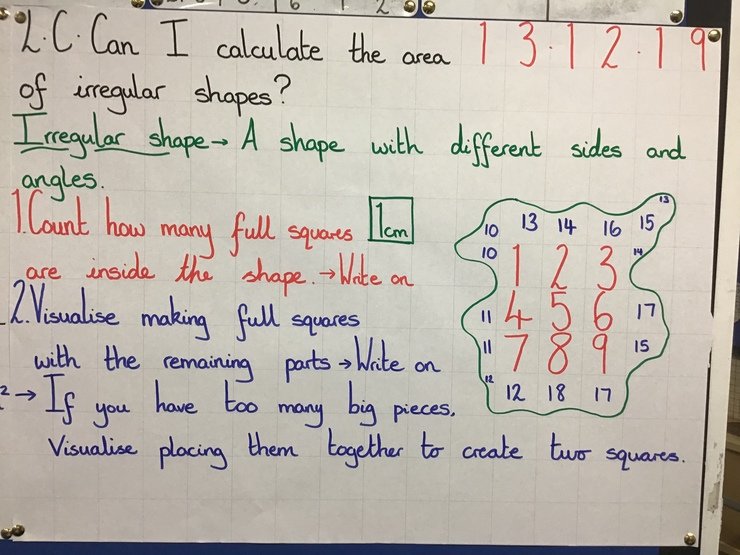 L.C. Can I calculate the area 13.12.19
of irregular shapes?
Irregular shape → A shape with different sides and
angles.
1. Count how many full squares 1cm
are inside the shape. → Write on
2. Visualise making full squares
with the remaining parts → Write on
2 → If you have too many big pieces,
Visualise placing them together to create two squares.
13
10 13 14 16 15
10 1 2 3 14
11 4 5 6 17
11 7 8 9 15
12
12 18 17